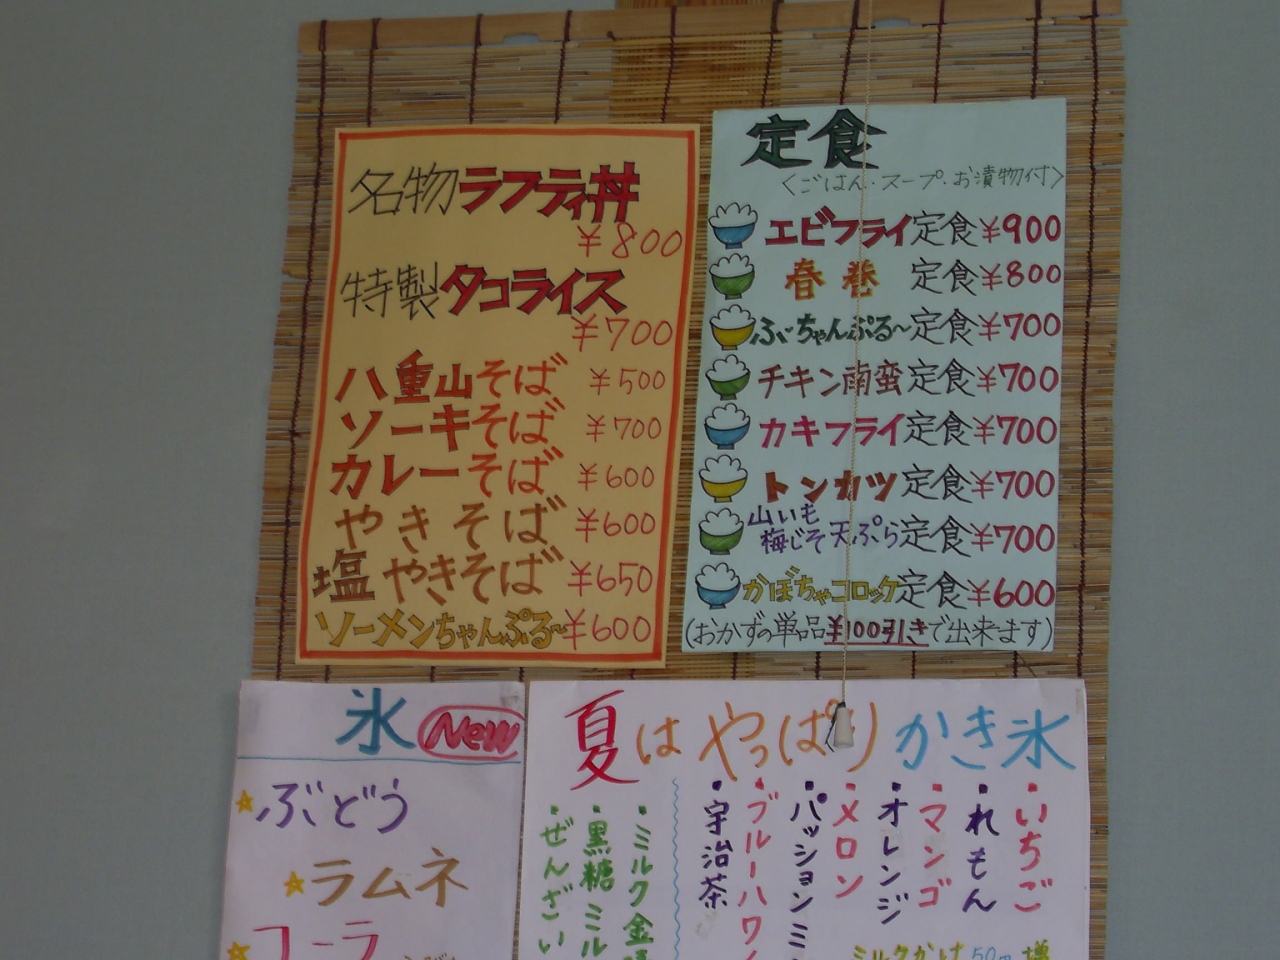 名物ラフティ丼
¥800
特製タコライス
¥700
八重山そば ¥500
ソーキそば ¥700
カレーそば ¥600
やきそば ¥600
塩やきそば ¥650
ソーメンちゃんぷる〜 ¥600
定食
〈ごはん・スープ・お漬物付〉
エビフライ定食¥900
春巻 定食¥800
ふーちゃんぷる〜定食¥700
チキン南蛮定食¥700
カキフライ定食¥700
トンカツ定食¥700
山いも
梅じそ天ぷら定食¥700
かぼちゃコロッケ定食¥600
(おかずの単品¥100引きで出来ます)
氷 New
☆ぶどう
☆ラムネ
☆コーラ
夏はやっぱりかき氷
・いちご
・れもん
・マンゴ
・オレンジ
・メロン
・パッション
・ブルーハワ
・宇治茶
・ミルク金
・黒糖ミル
・ぜんざい
ミルクかけ 50 増